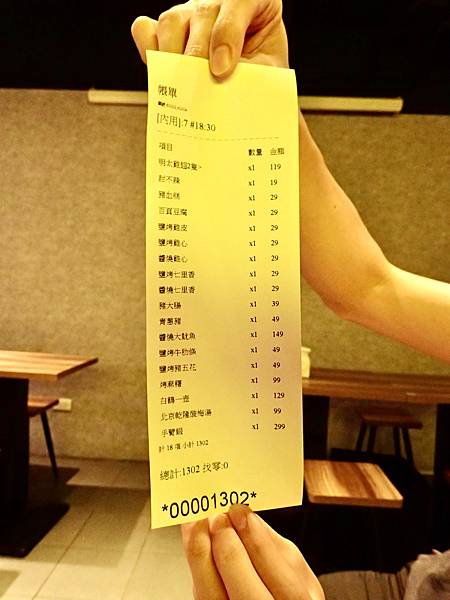 帳單
[內用]:7 #18:30
項目 數量 金額
明太雞翅2隻> x1 119
甜不辣 x1 19
豬血糕 x1 29
百頁豆腐 x1 29
鹽烤雞皮 x1 29
鹽烤雞心 x1 29
醬燒雞心 x1 29
鹽烤七里香 x1 29
醬燒七里香 x1 29
豬大腸 x1 39
青蔥豬 x1 49
醬燒大魷魚 x1 149
鹽烤牛肋條 x1 49
鹽烤豬五花 x1 49
烤麻糬 x1 99
白鶴一壺 x1 129
北京乾隆酸梅湯 x1 99
手臂鍛 x1 299
計 18 項 小計 1302
總計:1302 找零:0
*00001302*